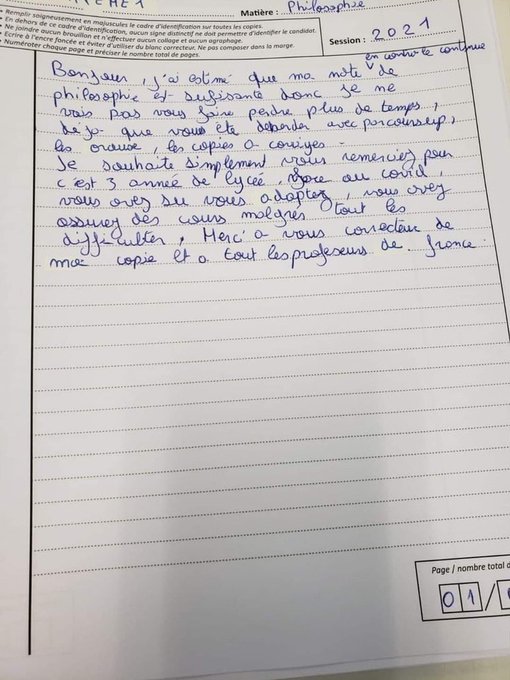 Matière : Philosophie
• Remplir soigneusement en majuscules le cadre d'identification sur toutes les copies.
• En dehors de ce cadre d'identification, aucun signe distinctif ne doit permettre d'identifier le candidat.
• Ne joindre aucun brouillon et n'effectuer aucun collage et aucun agraphage.
• Ecrire à l'encre foncée et éviter d'utiliser du blanc correcteur. Ne pas composer dans la marge.
• Numéroter chaque page et préciser le nombre total de pages.
Session : 2021
en controle continue
Bonjour, j'ai estimé que ma note de
philosophie est sufisante donc je ne
vais pas vous faire perdre plus de temps,
deja que vous ete deborder avec parcoursup,
les oraux, les copies a corriges.
Je souhaite simplement vous remerciez pour
c'est 3 année de lyceé, face au covid,
vous avez su vous adaptez, vous avez
assurez des cours malgres tout les
difficulter, Merci a vous correcteur de
ma copie et a tout les profeseurs de france.
Page / nombre total d
01/